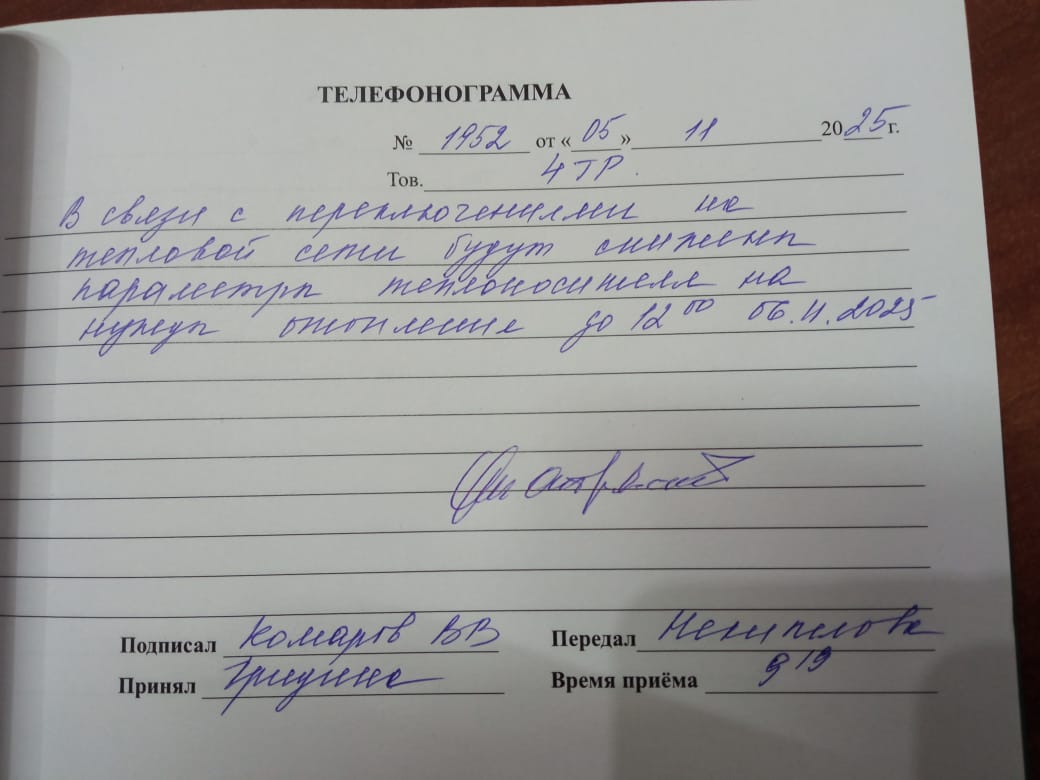 ТЕЛЕФОНОГРАММА
№ 1952 от «05» 11 2025 г.
Тов. 4 ТР.
В связи с переключениями на
тепловой сети будут снижены
параметры теплоносителя на
нужды отопления до 12 00 06.11.2025
Подписал Комаров ВВ Передал Некипелова
Принял Гридина Время приёма 9 19